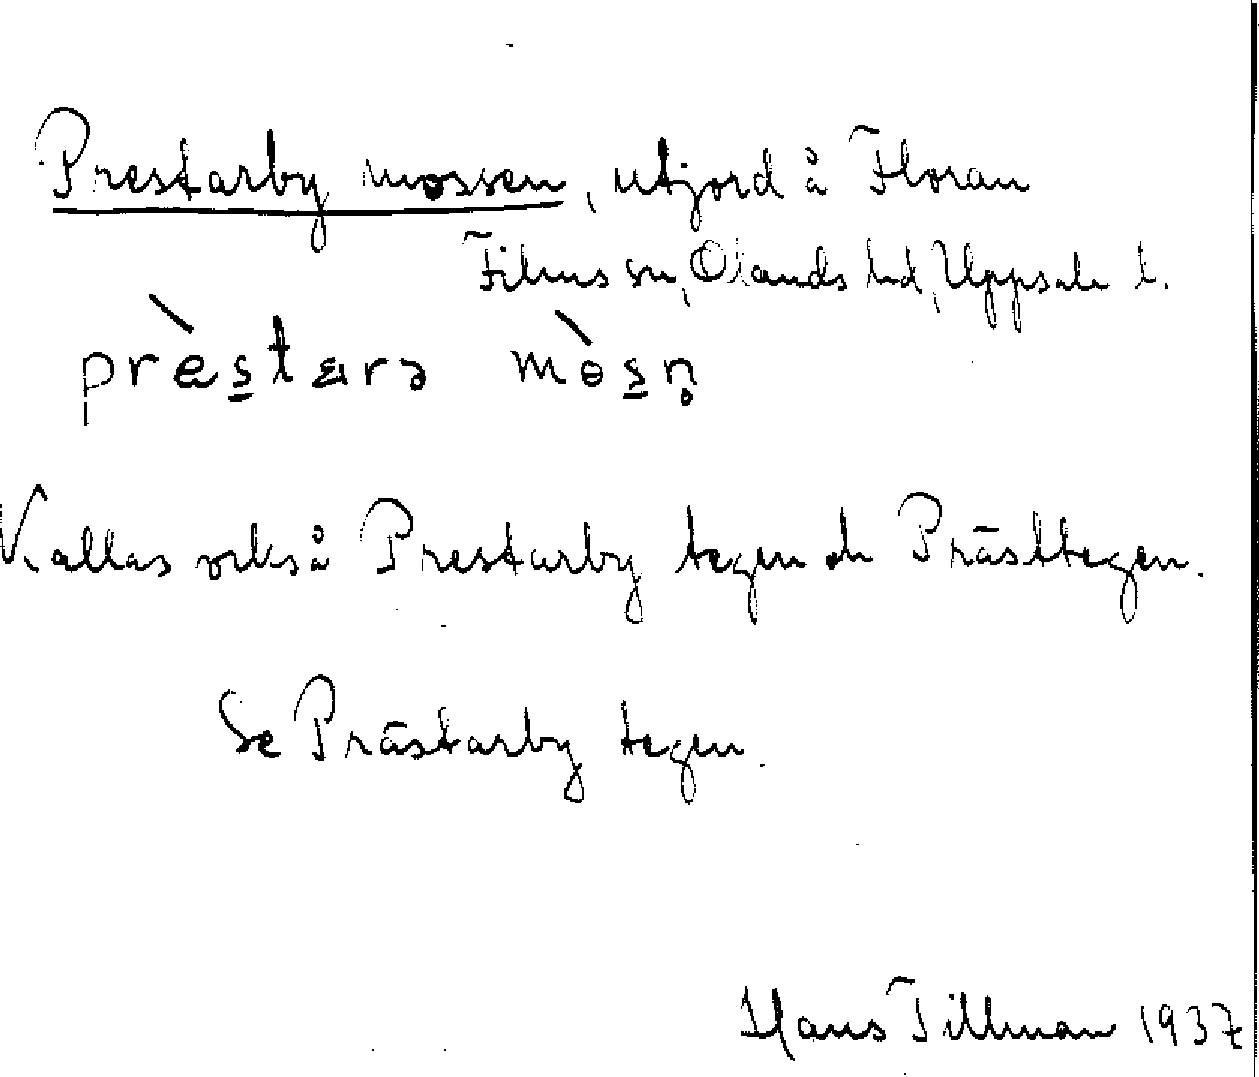 Prestarby mossen, utjord å Floran
Films sn, Olands hd, Uppsala l.
prèstarə mòsn̥
Kallas också Prestarby tegen o Prästtegen.
Se Prästarby tegen.
Hans Tillman 1937